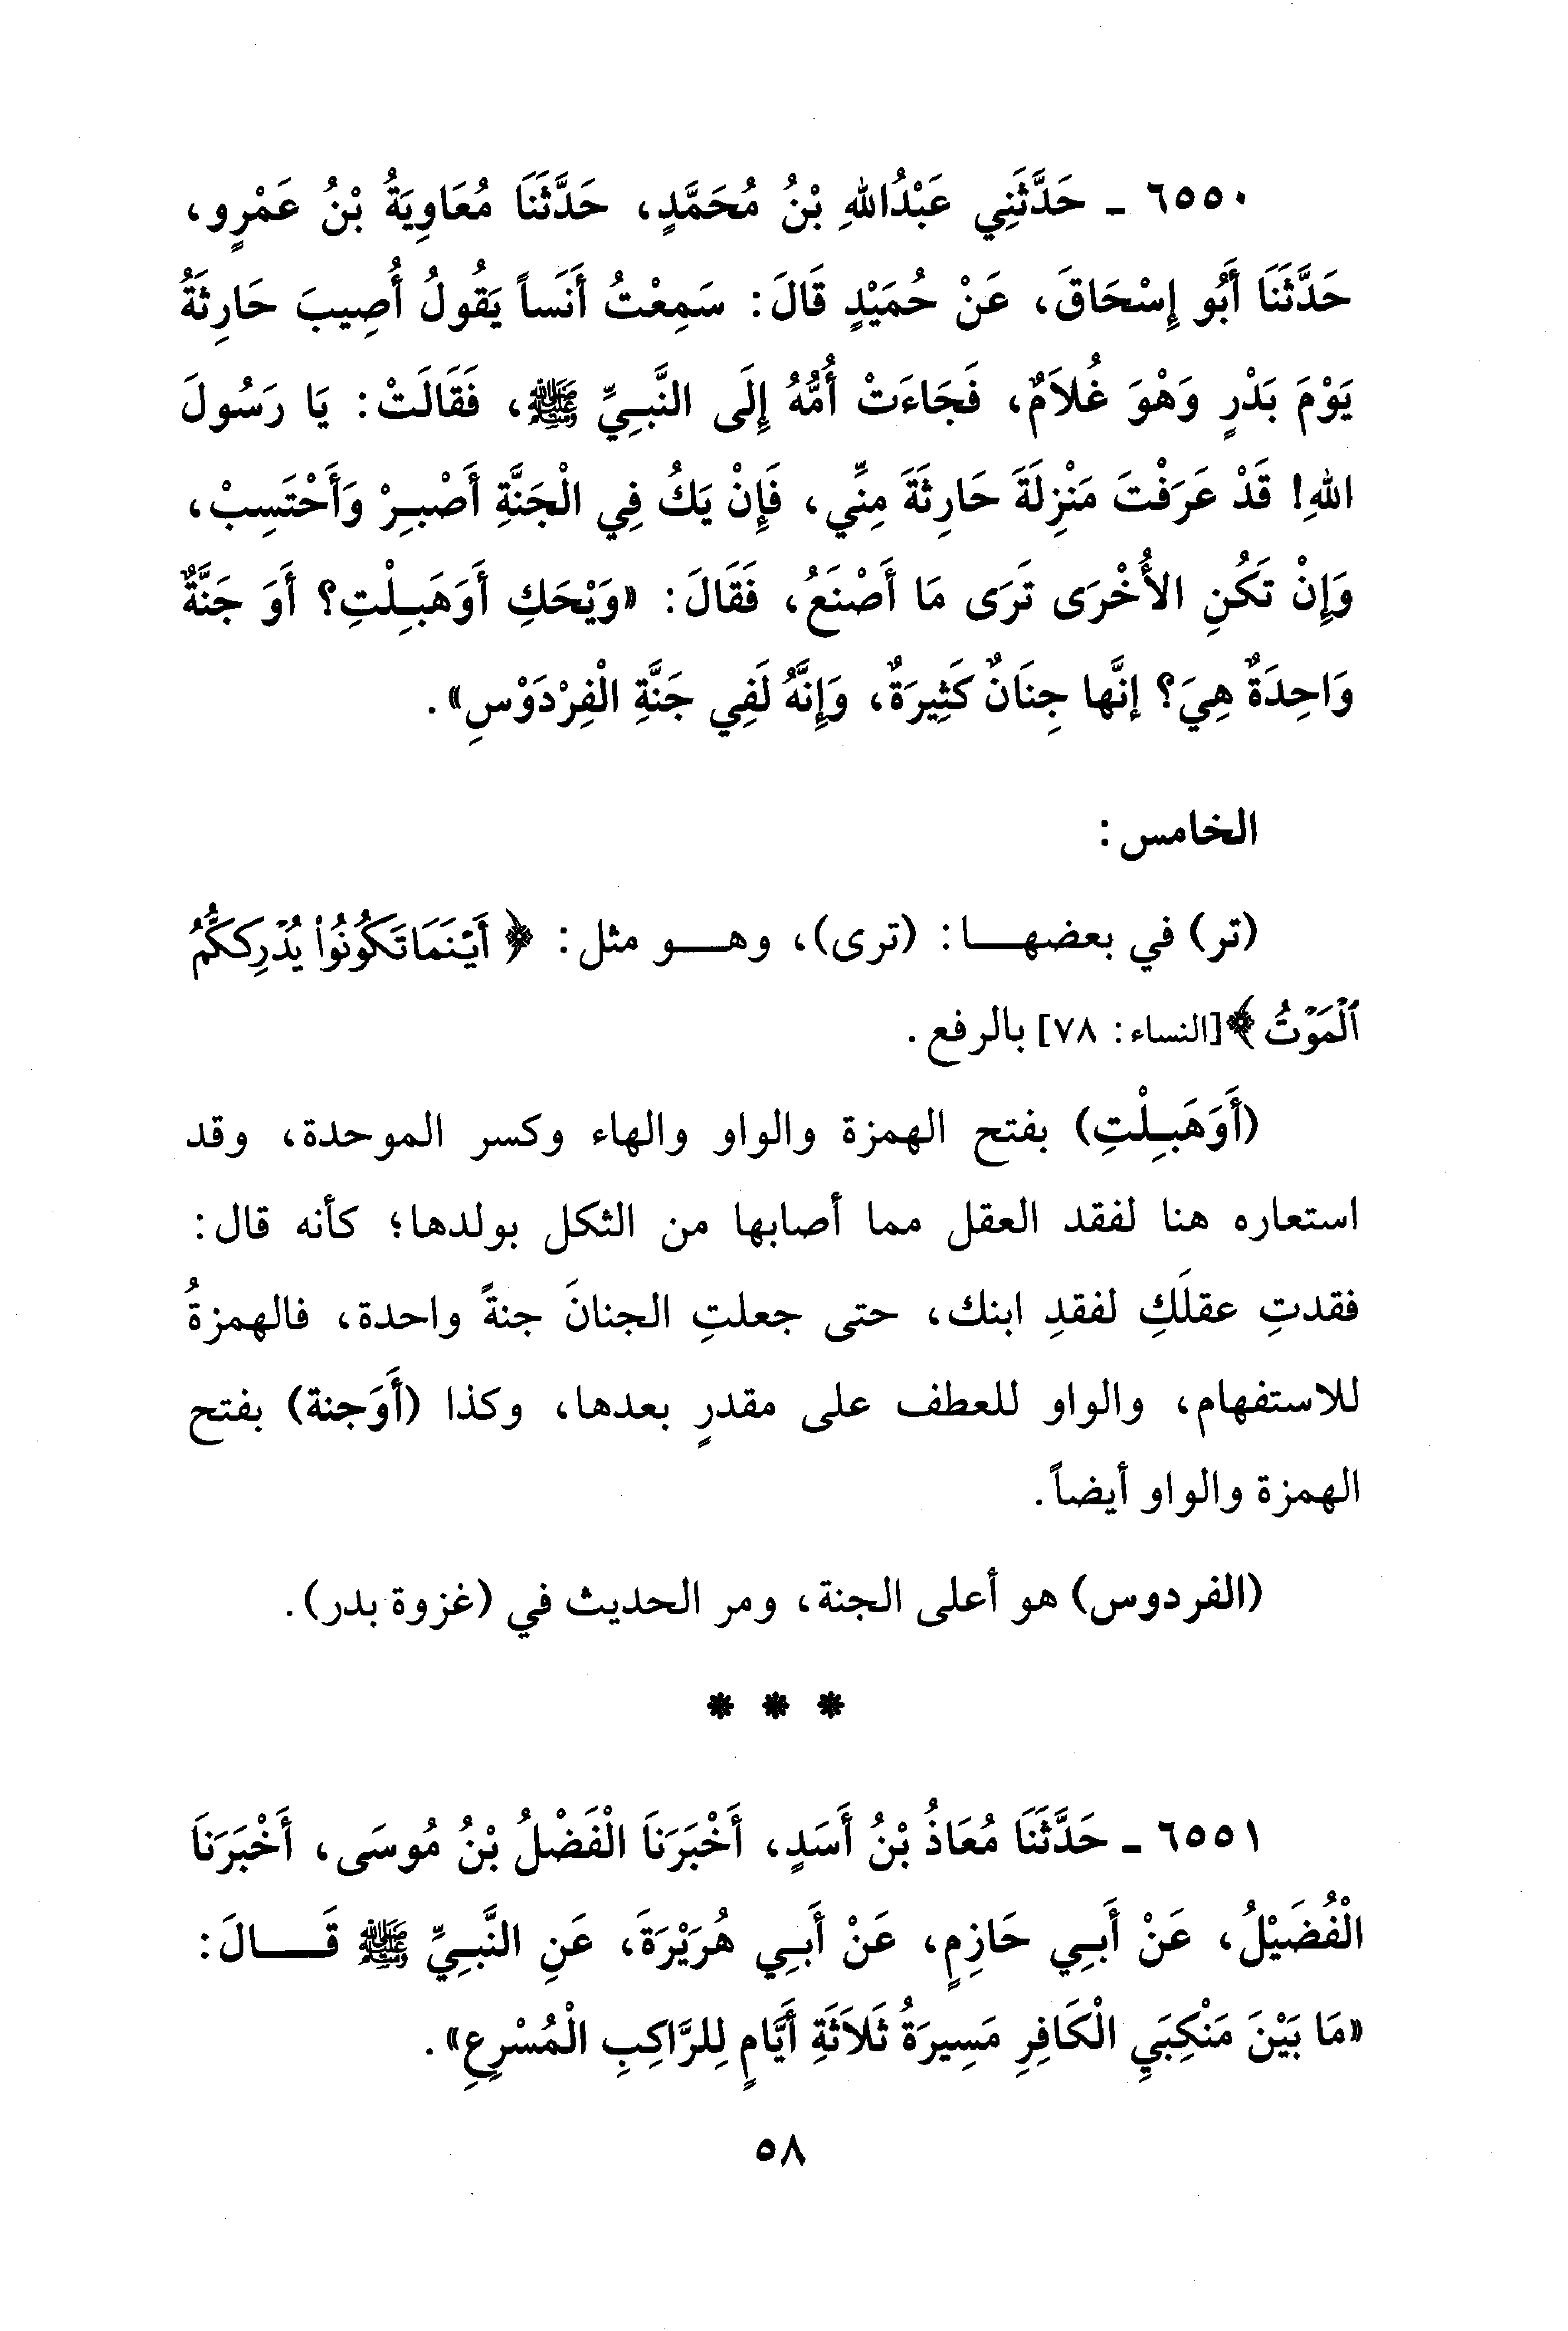 ٦٥٥٠ - حَدَّثَنِي عَبْدُاللهِ بْنُ مُحَمَّدٍ، حَدَّثَنَا مُعَاوِيَةُ بْنُ عَمْرٍو،
حَدَّثَنَا أَبُو إِسْحَاقَ، عَنْ حُمَيْدٍ قَالَ: سَمِعْتُ أَنَساً يَقُولُ أُصِيبَ حَارِثَةُ
يَوْمَ بَدْرٍ وَهْوَ غُلاَمٌ، فَجَاءَتْ أُمُّهُ إِلَى النَّبِيِّ ﷺ، فَقَالَتْ: يَا رَسُولَ
اللهِ! قَدْ عَرَفْتَ مَنْزِلَةَ حَارِثَةَ مِنِّي، فَإِنْ يَكُ فِي الْجَنَّةِ أَصْبِرْ وَأَحْتَسِبْ،
وَإِنْ تَكُنِ الأُخْرَى تَرَى مَا أَصْنَعُ، فَقَالَ: «وَيْحَكِ أَوَهَبِلْتِ؟ أَوَ جَنَّةٌ
وَاحِدَةٌ هِيَ؟ إِنَّها جِنَانٌ كَثِيرَةٌ، وَإِنَّهُ لَفِي جَنَّةِ الْفِرْدَوْسِ».
الخامس:
(تر) في بعضهـــا: (ترى)، وهـــو مثل: ﴿أَيْنَمَا تَكُونُوا۟ يُدْرِككُّمُ
ٱلْمَوْتُ﴾ [النساء: ٧٨] بالرفع.
(أَوَهَبِلْتِ) بفتح الهمزة والواو والهاء وكسر الموحدة، وقد
استعاره هنا لفقد العقل مما أصابها من الثكل بولدها؛ كأنه قال:
فقدتِ عقلَكِ لفقدِ ابنك، حتى جعلتِ الجنانَ جنةً واحدة، فالهمزةُ
للاستفهام، والواو للعطف على مقدرٍ بعدها، وكذا (أَوَجنة) بفتح
الهمزة والواو أيضاً.
(الفردوس) هو أعلى الجنة، ومر الحديث في (غزوة بدر).
* * *
٦٥٥١ - حَدَّثَنَا مُعَاذُ بْنُ أَسَدٍ، أَخْبَرَنَا الْفَضْلُ بْنُ مُوسَى، أَخْبَرَنَا
الْفُضَيْلُ، عَنْ أَبِي حَازِمٍ، عَنْ أَبِي هُرَيْرَةَ، عَنِ النَّبِيِّ ﷺ قَـــالَ:
«مَا بَيْنَ مَنْكِبَيِ الْكَافِرِ مَسِيرَةُ ثَلاَثَةِ أَيَّامٍ لِلرَّاكِبِ الْمُسْرِعِ».
٥٨